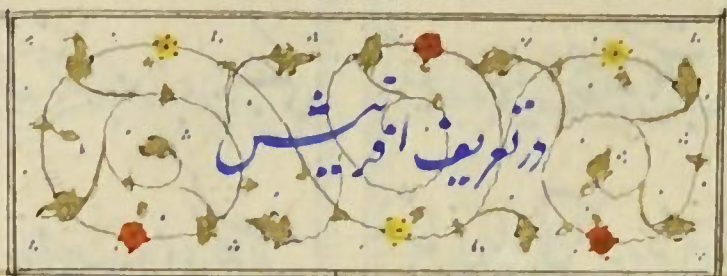 در تعریف افرینش